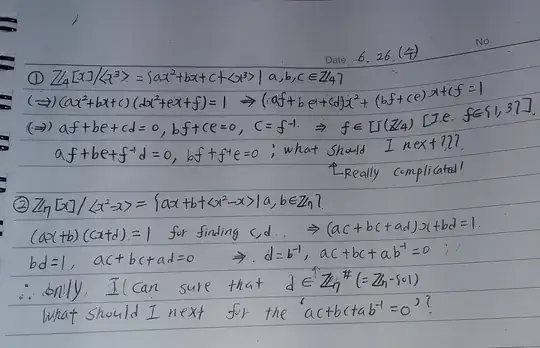 No.
Date 6. 26. (수)
① ℤ₄[x]/<x³> = {ax²+bx+c+<x³> | a,b,c ∈ ℤ₄}
(⇒) (ax²+bx+c)(dx²+ex+f) = 1 ⇒ (af+be+cd)x² + (bf+ce)x + cf = 1
(⇒) af+be+cd=0, bf+ce=0, c=f⁻¹ ⇒ f ∈ U(ℤ₄) [I.e. f∈{1,3}].
af+be+f⁻¹d=0, bf+f⁻¹e=0 ; What should I next???
↑Really complicated!
② ℤ₇[x]/<x²-x> = {ax+b+<x²-x> | a,b∈ℤ₇}
(ax+b)(cx+d)=1 for finding c,d. ⇒ (ac+bc+ad)x+bd=1.
bd=1, ac+bc+ad=0 ⇒ d=b⁻¹, ac+bc+ab⁻¹=0
∴ Only, I can sure that d ∈ ℤ₇# (=ℤ₇-{0})
What should I next for the 'ac+bc+ab⁻¹=0'?